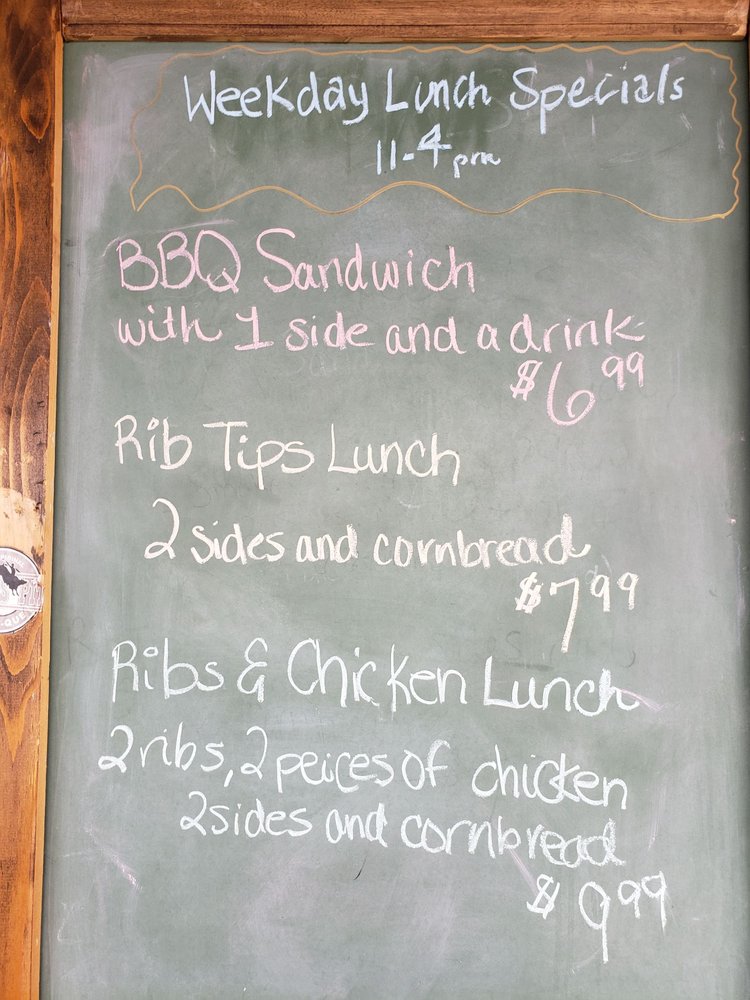 Weekday Lunch Specials
11-4pm
BBQ Sandwich
with 1 side and a drink
$6.99
Rib Tips Lunch
2 sides and cornbread
$7.99
Ribs & Chicken Lunch
2 ribs, 2 peices of chicken
2 sides and cornbread
$9.99